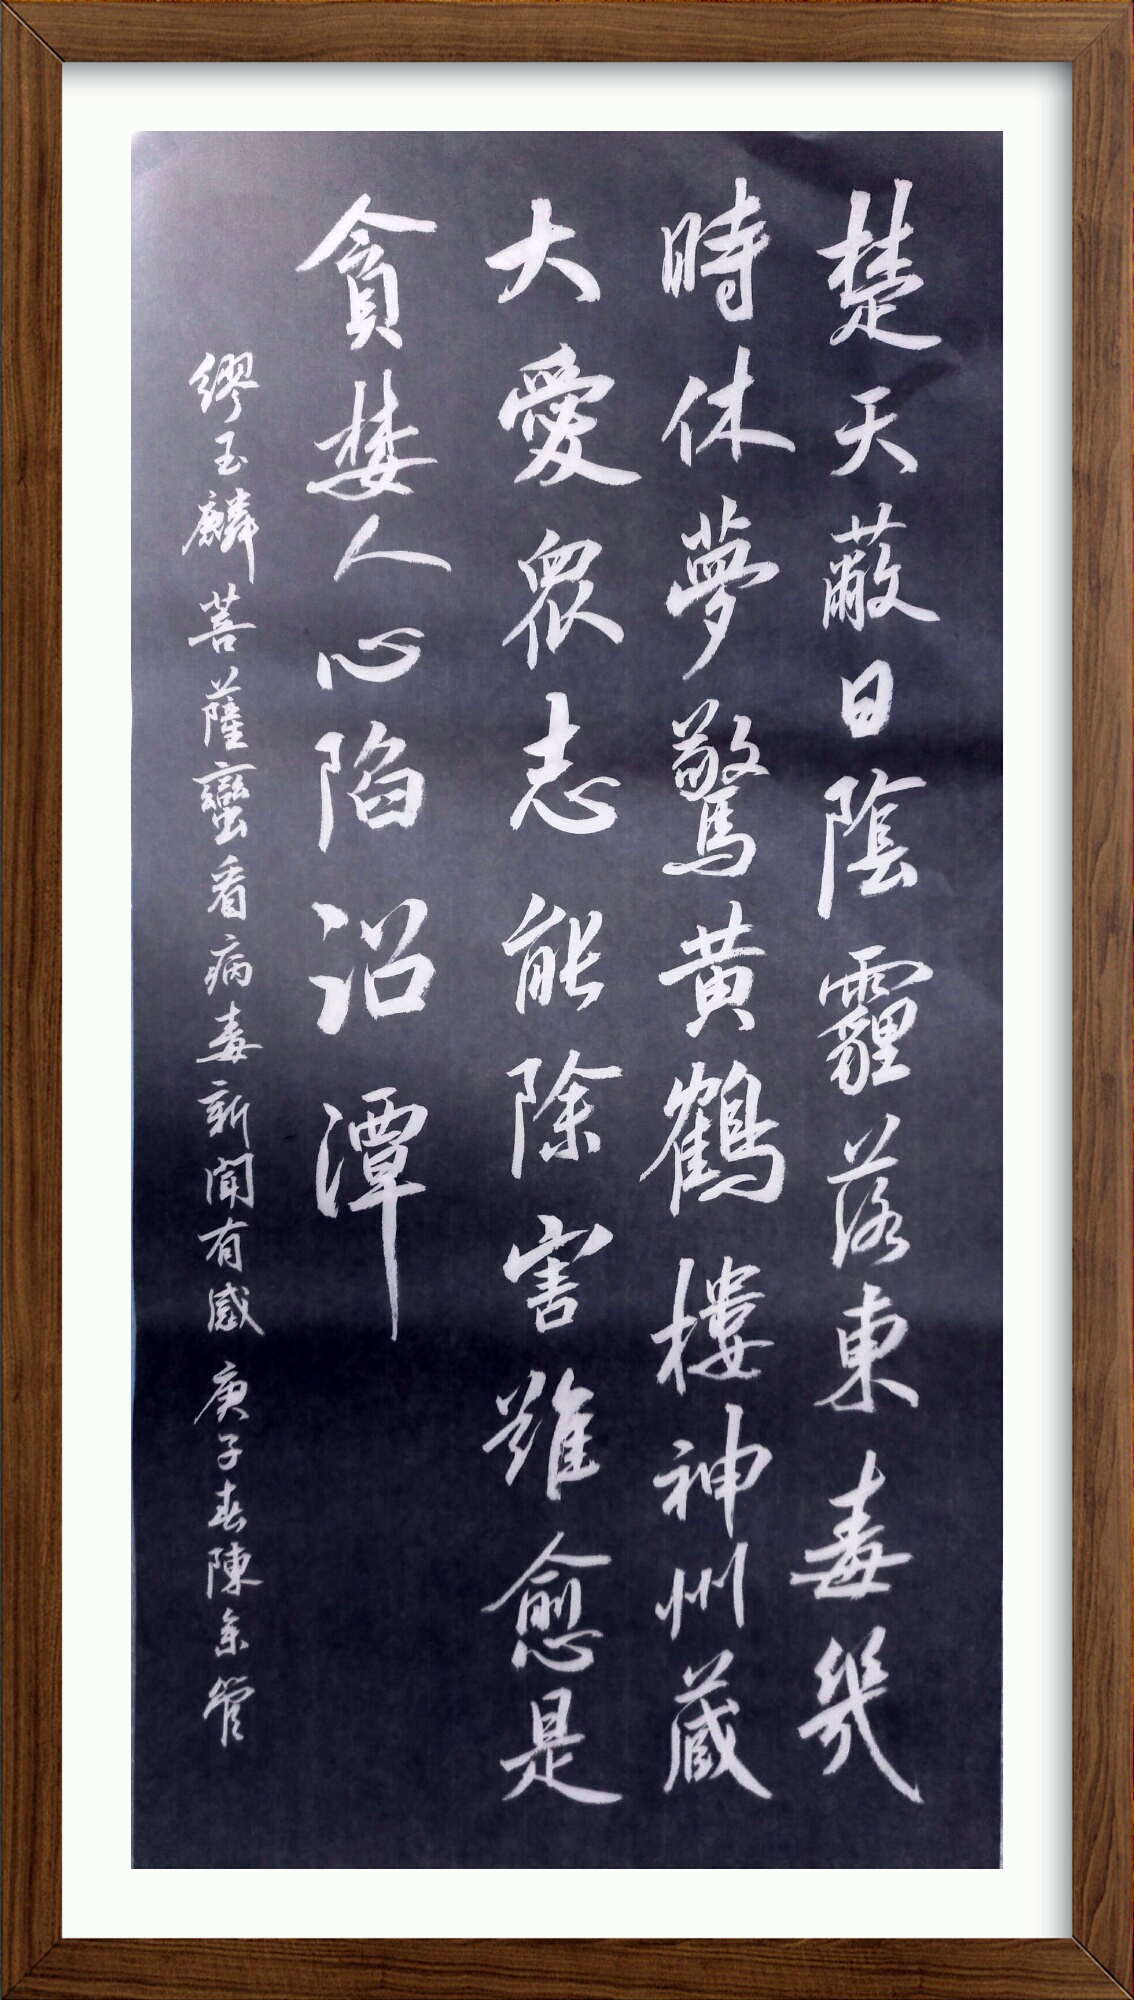 楚天蔽日陰霾落東毒幾
時休夢驚黃鶴樓神州蔵
大愛眾志能除害難愈是
貪婪人心陷沼潭
繆玉麟菩薩蠻看病毒新聞有感 庚子春陳